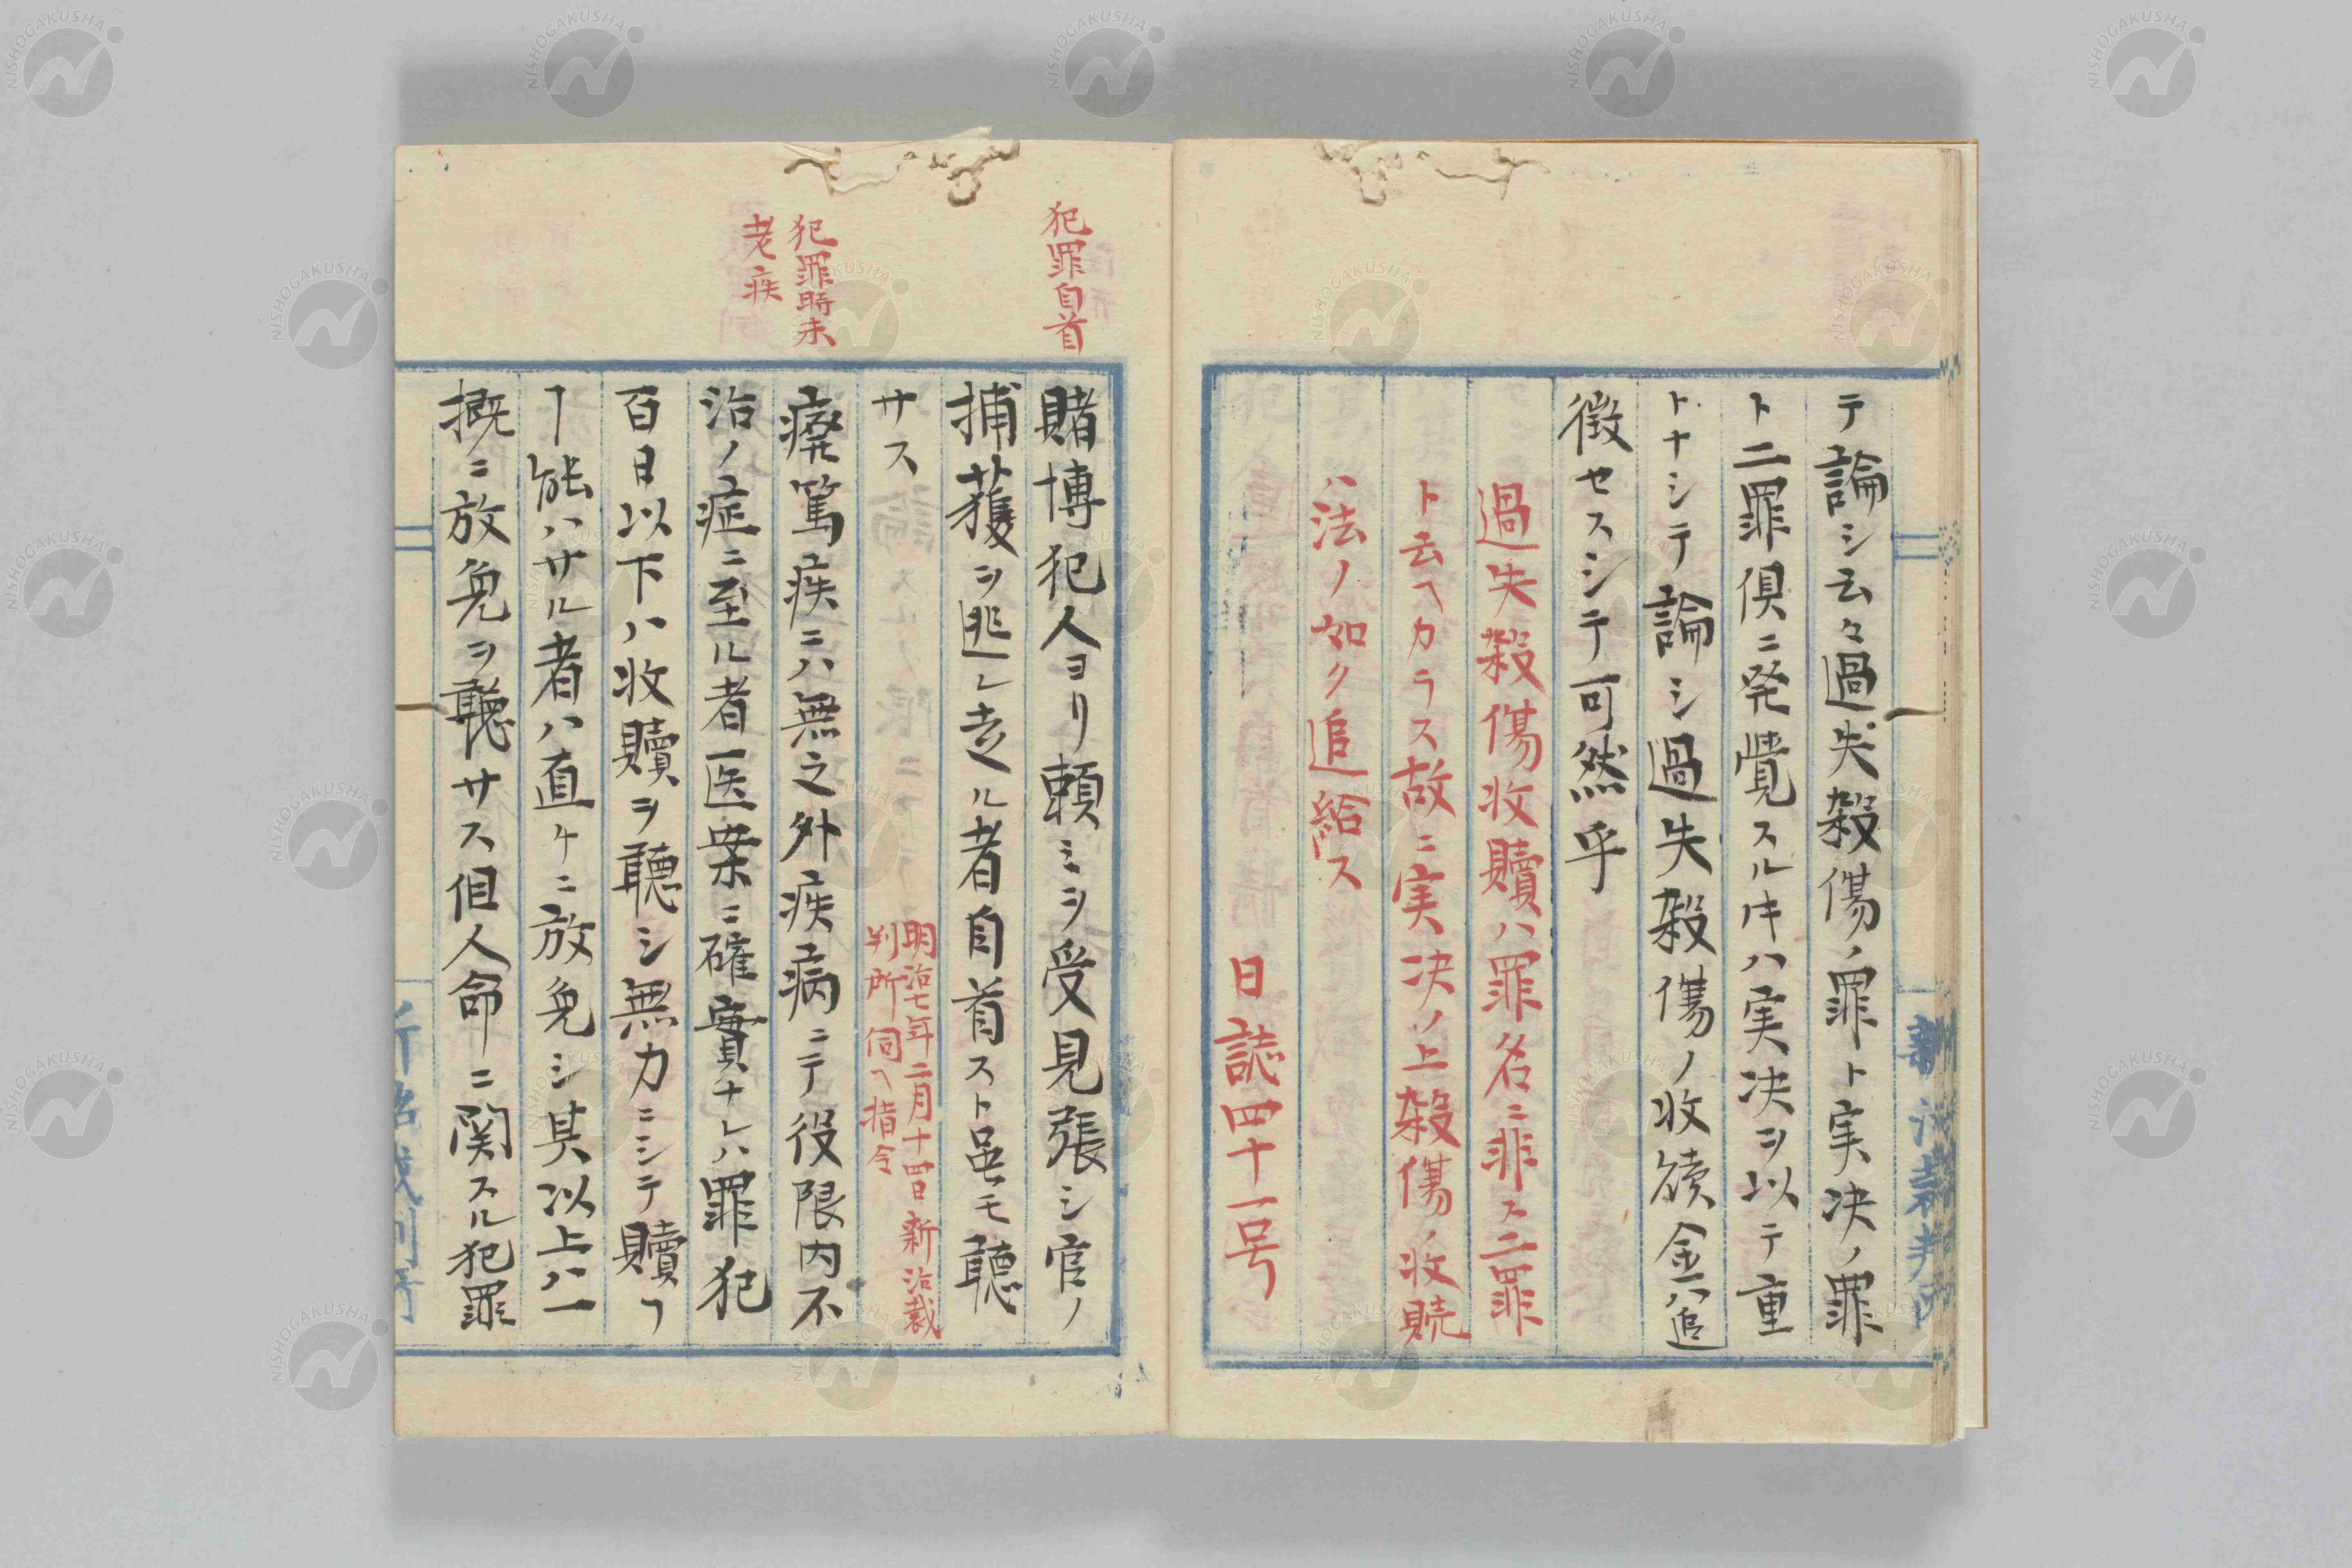 テ論シ云々過失殺傷ノ罪ト実決ノ罪
ト二罪倶ニ発覚スルキハ実决ヲ以テ重
トナシテ論シ過失殺傷ノ收贖金ハ追
徴セスシテ可然乎
過失殺傷收贖ハ罪名ニ非ス二罪
ト云ヘカラス故ニ実决ノ上殺傷ノ收贖
ハ法ノ如ク追給ス
日誌四十一号
犯罪自首
賭博犯人ヨリ頼ミヲ受見張シ官ノ
捕獲ヲ逃レ走ル者自首スト𧈧モ聴
サス
明治七年二月十四日新治裁
判所伺ヘ指令
犯罪時未
老疾
癈篤疾ニハ無之外疾病ニテ役限内不
治ノ症ニ至ル者医案ニ確實ナレハ罪犯
百日以下ハ收贖ヲ聴シ無力ニシテ贖フ
ヿ能ハサル者ハ直ケニ放免シ其以上ハ一
概ニ放免ヲ聴サス但人命ニ関スル犯罪
新治裁判所